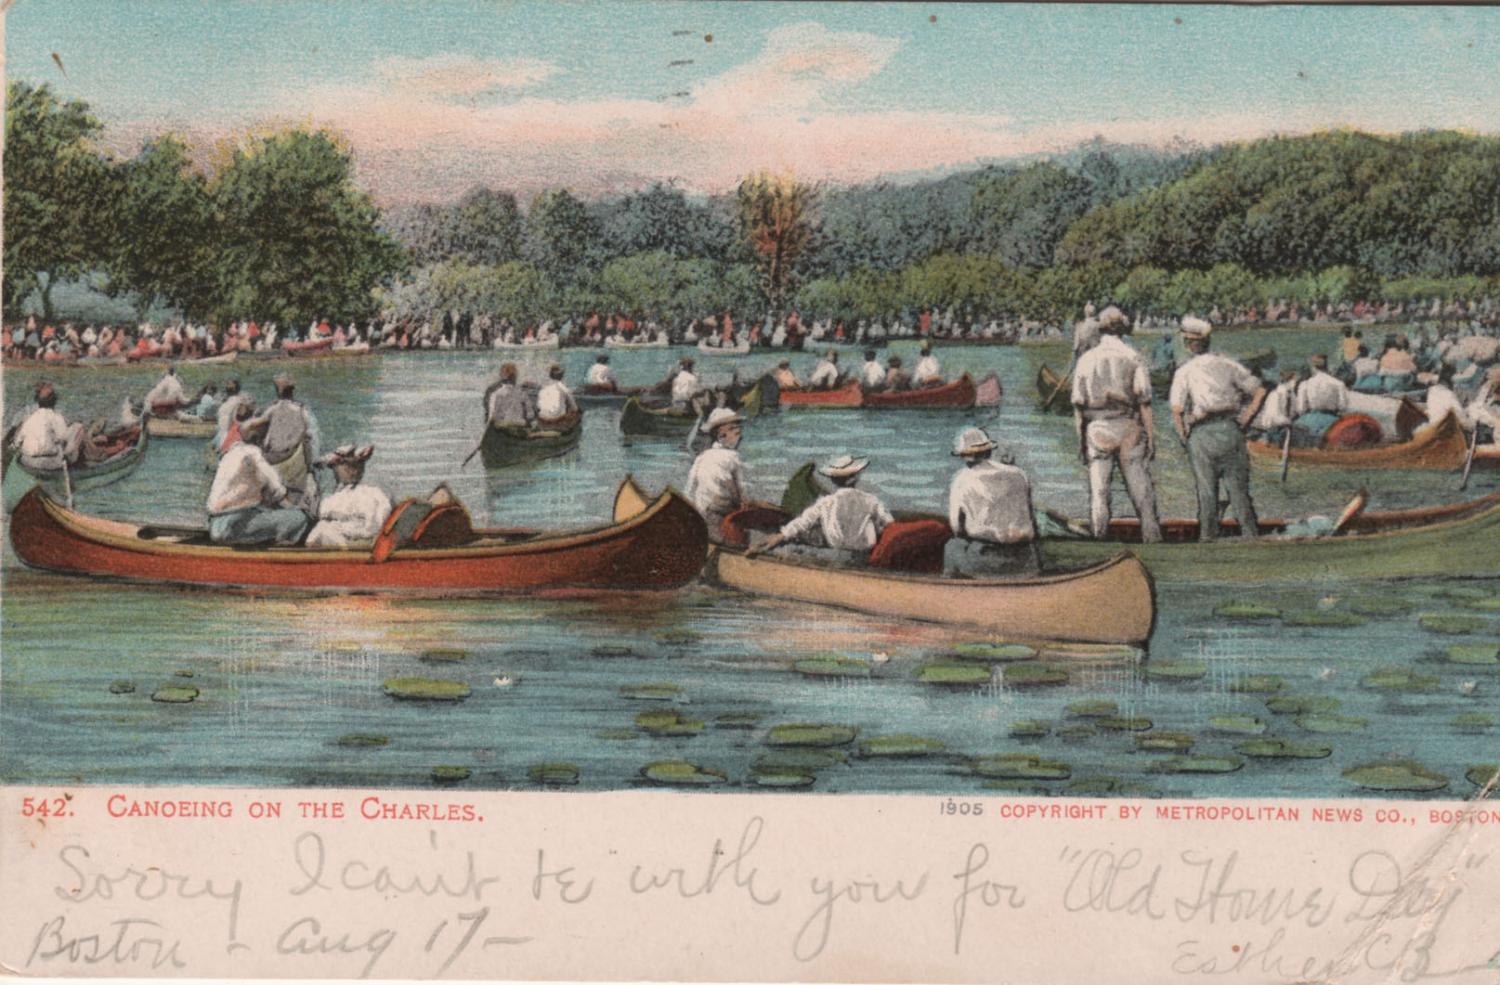 542. CANOEING ON THE CHARLES.
1905 COPYRIGHT BY METROPOLITAN NEWS CO., BOSTON
Sorry I can't be with you for "Old Home Day"
Boston - Aug 17-
Esther C B -